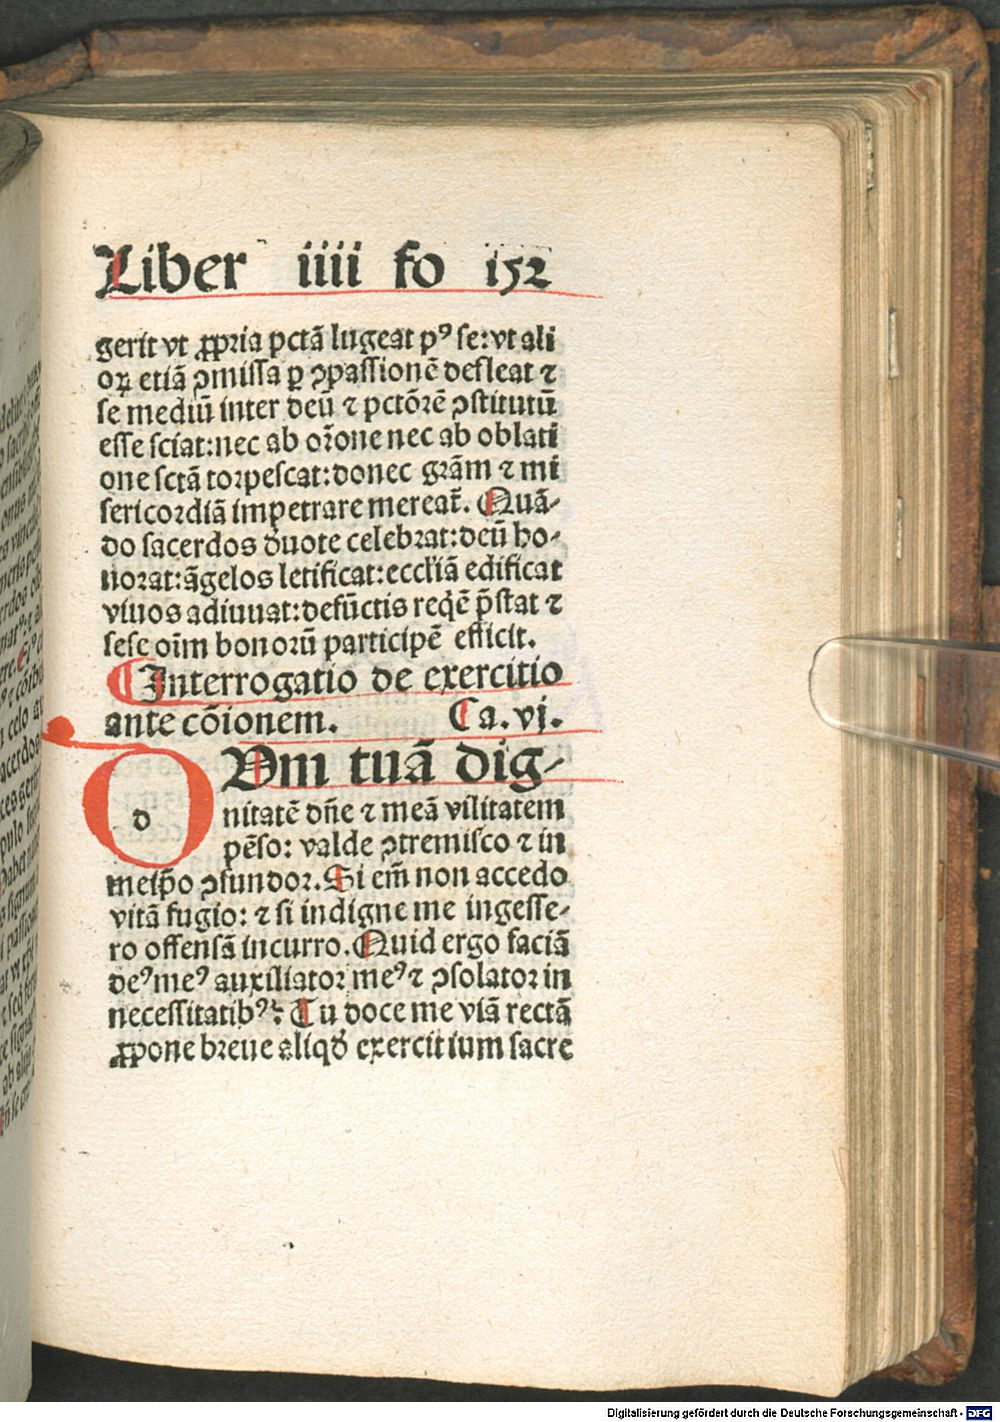 Liber iiii fo 152
gerit vt ꝓpria pctā lugeat pꝰ se: vt ali
oꝝ etiā ꝯmissa ꝑ ꝯpassionē defleat ⁊
se mediū inter deū ⁊ pctōrē ꝯstitutū
esse sciat: nec ab or̄one nec ab oblati
one sctā torpescat: donec grām ⁊ mi
sericordiā impetrare mereat̄. Quā⸗
do sacerdos d̓uote celebrat: deū ho⸗
norat: āgelos letificat: eccl̓iā edificat
viuos adiuuat: defūctis reqē p̄stat ⁊
sese oīm bonorū participē efficit.
¶ Interrogatio de exercitio
ante cōionem. Ca. vj.
d Vm tuā dig⸗
nitatē dn̄e ⁊ meā vilitatem
pēso: valde ꝯtremisco ⁊ in
meip̄o ꝯfundor. Si em̄ non accedo
vitā fugio: ⁊ si indigne me ingesse⸗
ro offensā incurro. Quid ergo faciā
deꝰ meꝰ auxiliator meꝰ ⁊ ꝯsolator in
necessitatibꝰ? Tu doce me viā rectā
ꝓpone breue aliqd̓ exercitium sacre
Digitalisierung gefördert durch die Deutsche Forschungsgemeinschaft - DFG